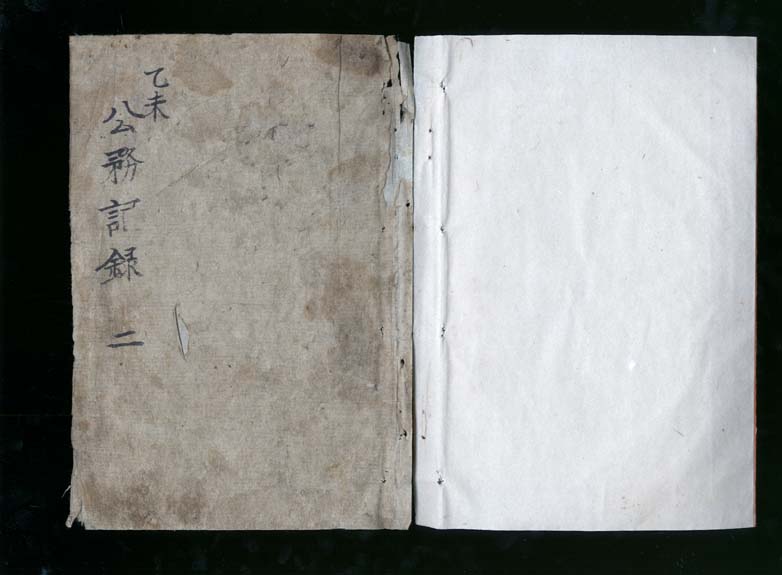 乙未
公務記録 二